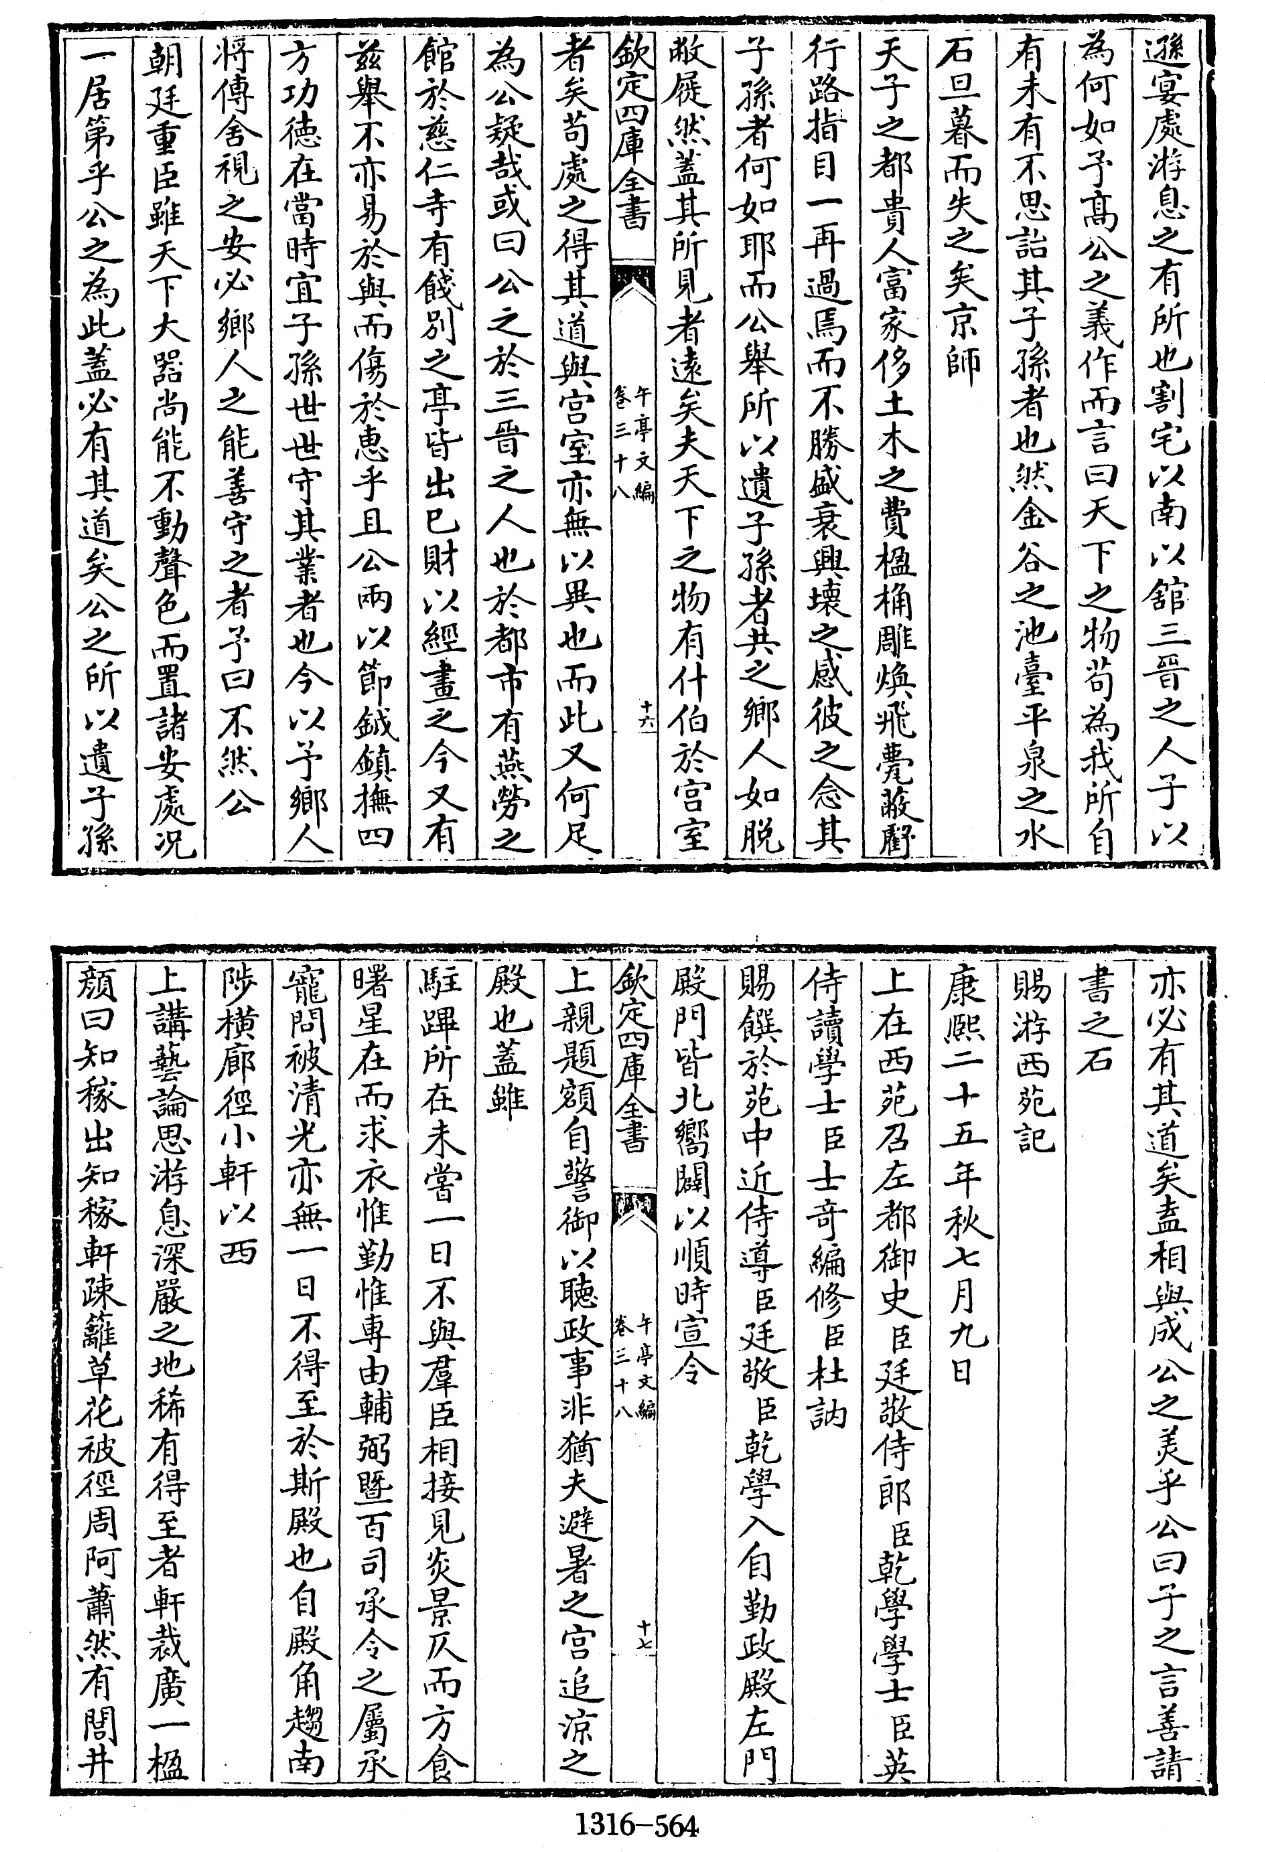 遜宴處游息之有所也割宅以南以舘三晉之人子以
為何如予髙公之義作而言曰天下之物苟為我所自
有未有不思詒其子孫者也然金谷之池臺平泉之水
石旦暮而失之矣京師
天子之都貴人富家侈土木之費楹桷雕煥飛甍蔽野
行路指目一再過焉而不勝盛衰興壞之感彼之念其
子孫者何如耶而公舉所以遺子孫者共之鄉人如脱
敝屣然蓋其所見者遠矣夫天下之物有什伯於宫室
欽定四庫全書
午亭文編
卷三十八
十六
者矣苟處之得其道與宫室亦無以異也而此又何足
為公疑哉或曰公之於三晉之人也於都市有燕勞之
館於慈仁寺有餞别之亭皆出已財以經畫之今又有
兹舉不亦易於與而傷於惠乎且公兩以節鉞鎮撫四
方功徳在當時宜子孫世世守其業者也今以予鄉人
将傳舍視之安必鄉人之能善守之者予曰不然公
朝廷重臣雖天下大器尚能不動聲色而置諸安處况
一居第乎公之為此蓋必有其道矣公之所以遺子孫
亦必有其道矣盍相與成公之美乎公曰子之言善請
書之石
賜游西苑記
康熙二十五年秋七月九日
上在西苑召左都御史臣廷敬侍郎臣乾學學士臣英
侍讀學士臣士奇編修臣杜訥
賜饌於苑中近侍導臣廷敬臣乾學入自勤政殿左門
殿門皆北嚮闢以順時宣令
欽定四庫全書
午亭文編
卷三十八
十七
上親題額自警御以聽政事非猶夫避暑之宫追凉之
殿也蓋雖
駐蹕所在未嘗一日不與羣臣相接見炎景仄而方食
曙星在而求衣惟勤惟専由輔弼暨百司承令之屬承
寵問被清光亦無一日不得至於斯殿也自殿角趨南
陟横廊徑小軒以西
上講藝論思游息深嚴之地稀有得至者軒裁廣一楹
顔曰知稼出知稼軒疎籬草花被徑周阿蕭然有閭井
1316-564